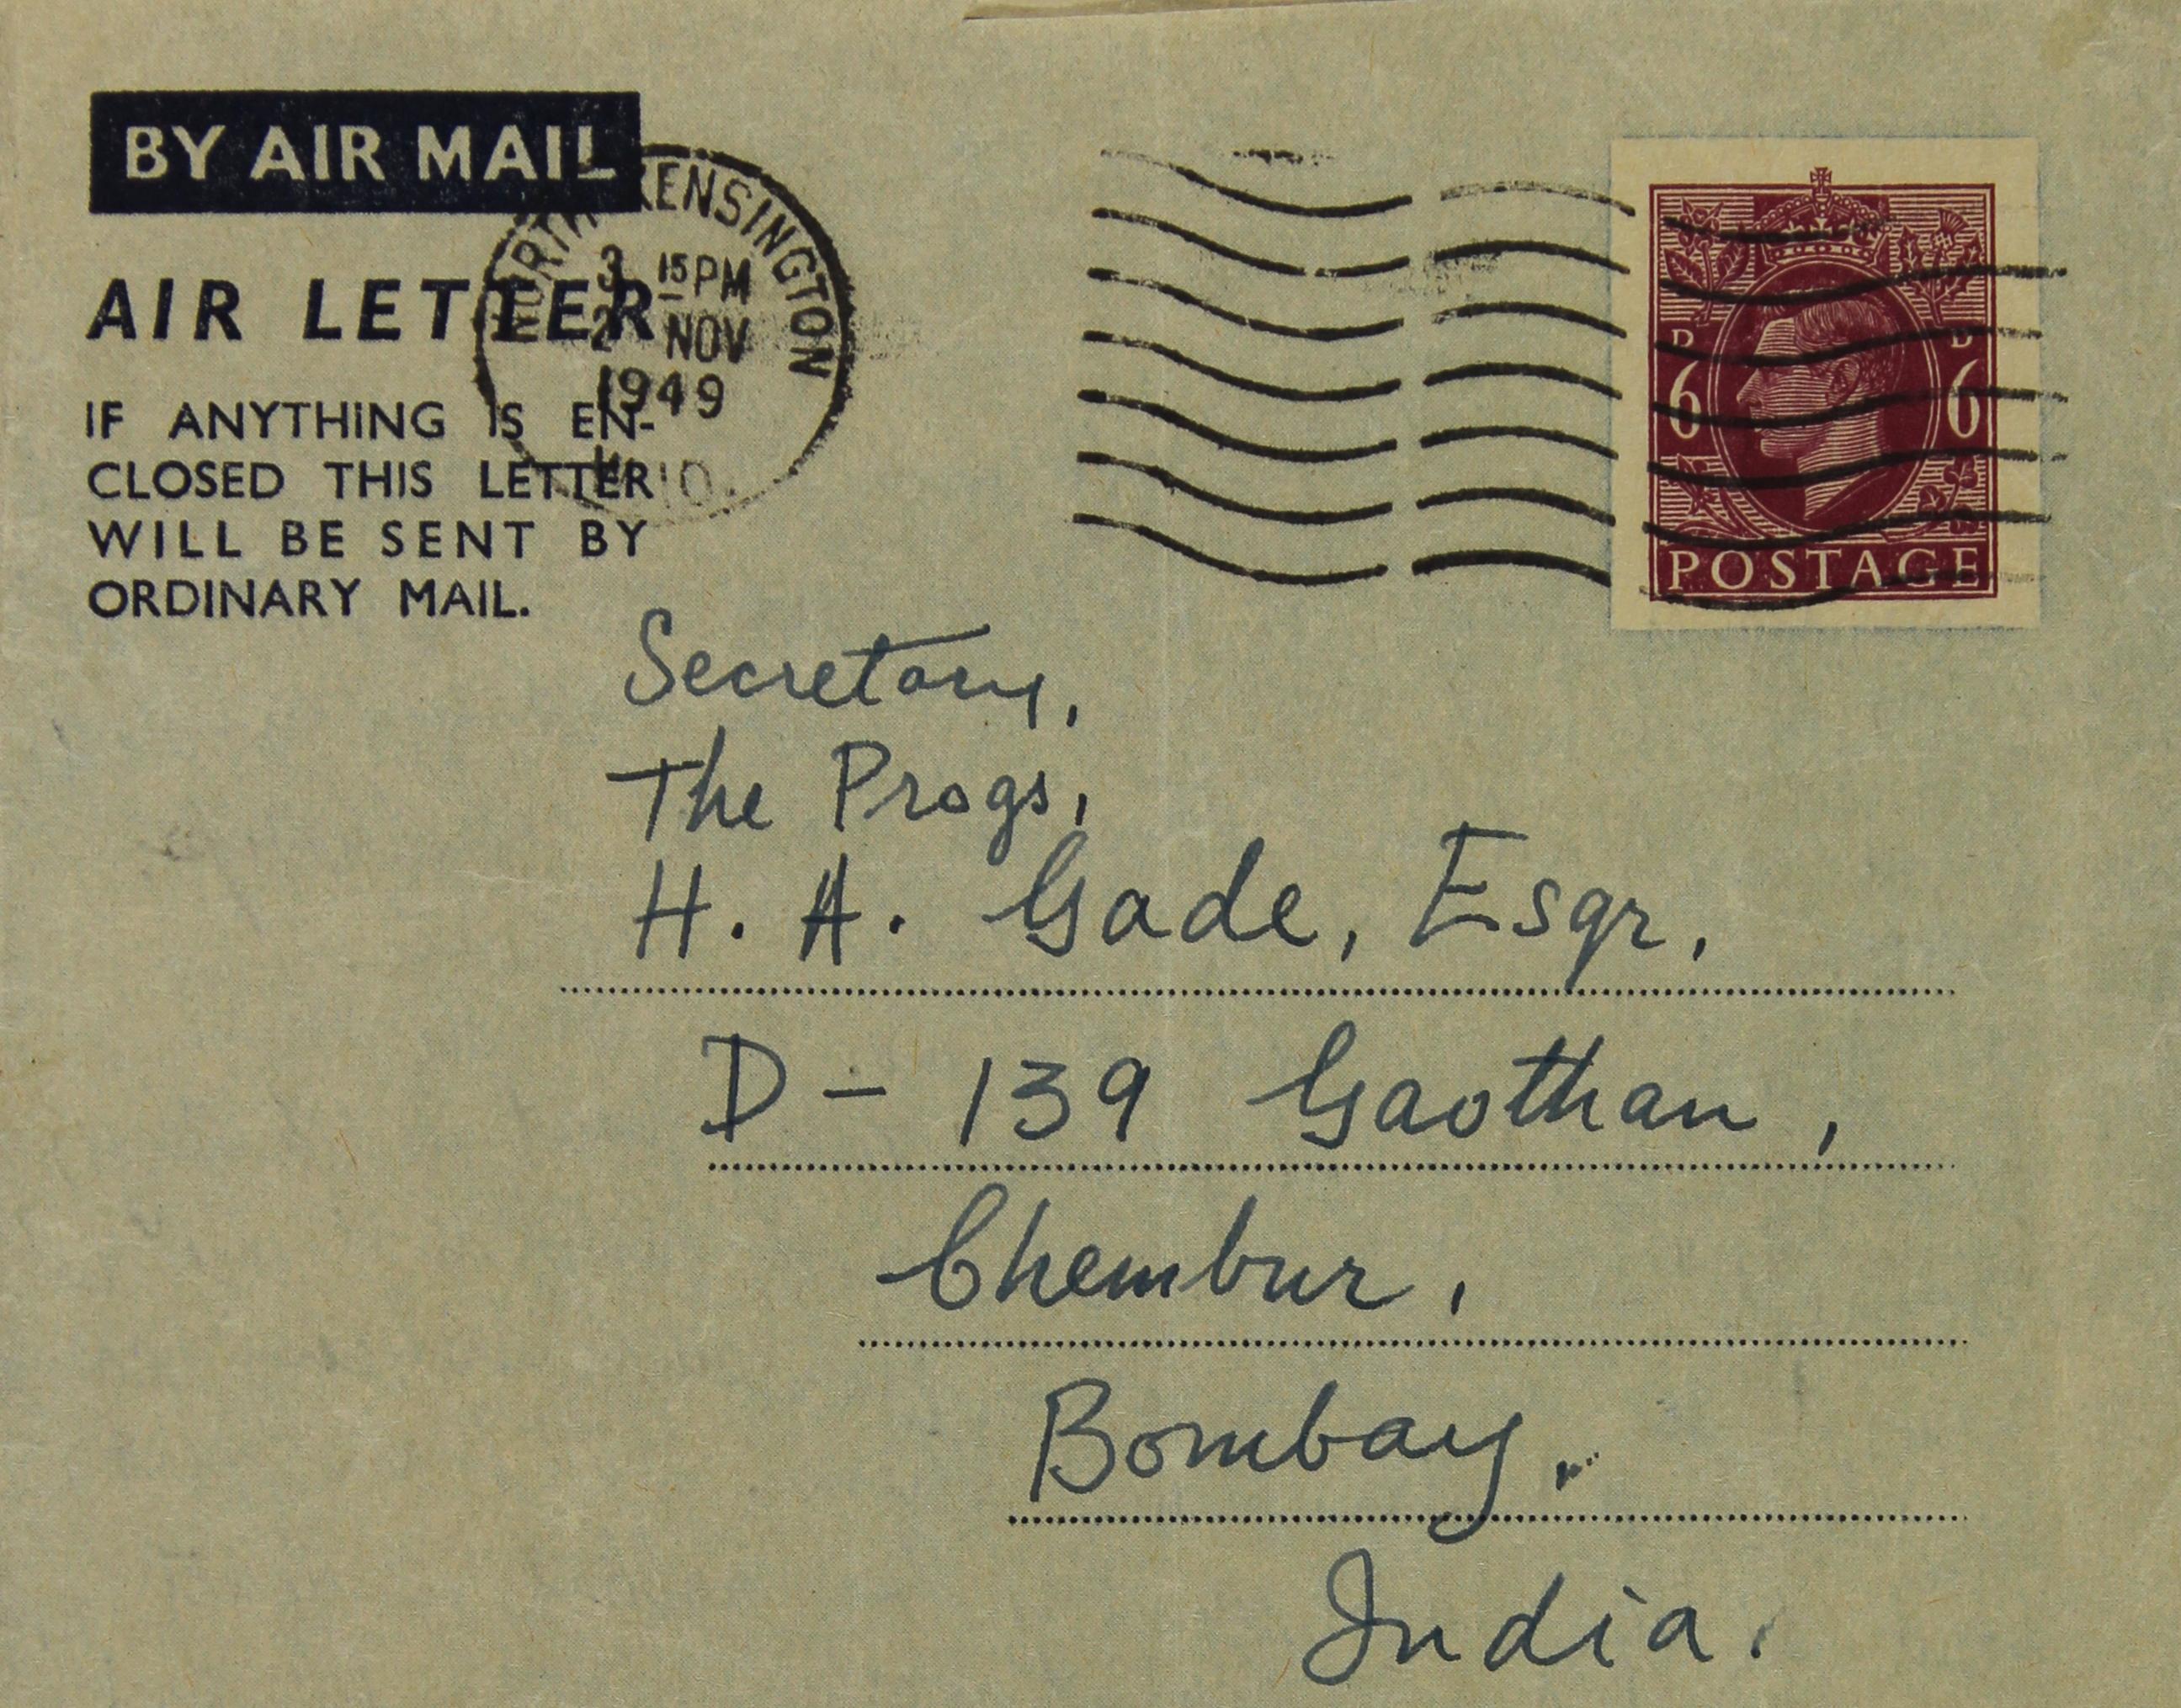 BY AIR MAIL
AIR LETTER
IF ANYTHING IS EN-
CLOSED THIS LETTER
WILL BE SENT BY
ORDINARY MAIL.
NORTH KENSINGTON
3 15 PM
2 NOV
1949
W.10.
D D
6 6
POSTAGE
Secretary,
The Progs,
H. A. Gade, Esqr,
D - 139 Gaothan,
Chembur,
Bombay.
India.